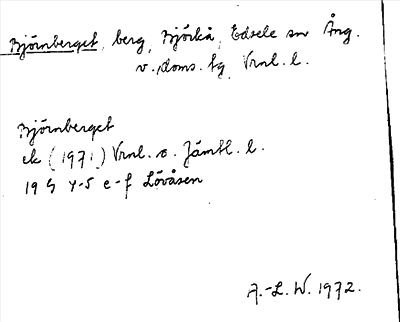 Björnberget, berg, Björkå, Edsele sn Ång.
v. doms. fg, Vrnl. l.
Björnberget
ek (1971) Vrnl. o. Jämtl. l.
19 G 4-5 e-f Lövåsen
A.-L. W. 1972.